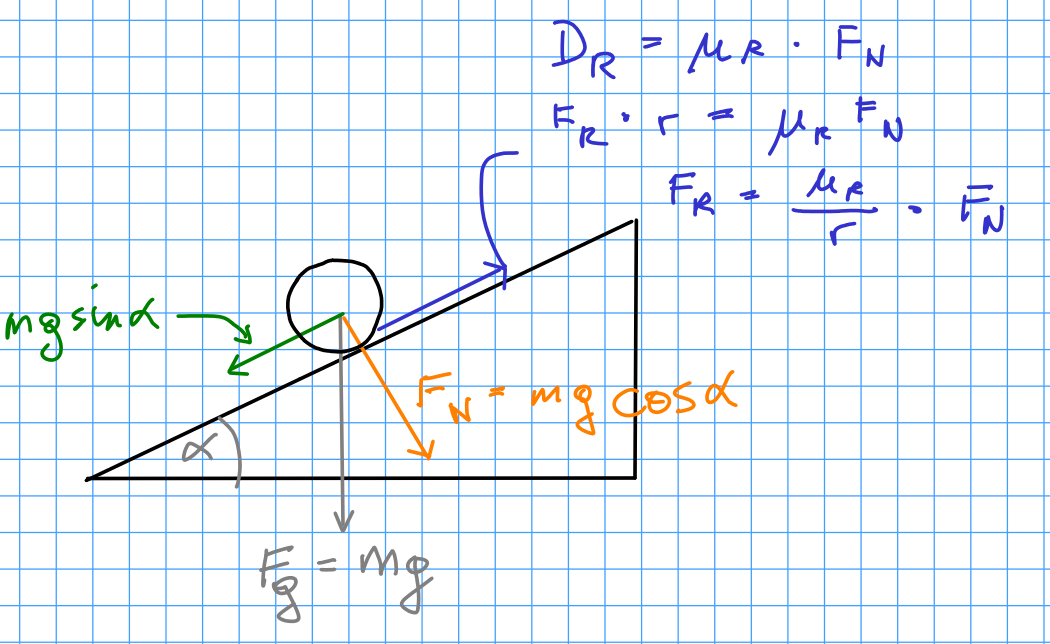 D_R = μ_R · F_N
F_R · r = μ_R F_N
F_R = μ_R / r · F_N
mg sin α
F_N = mg cos α
α
F_g = mg